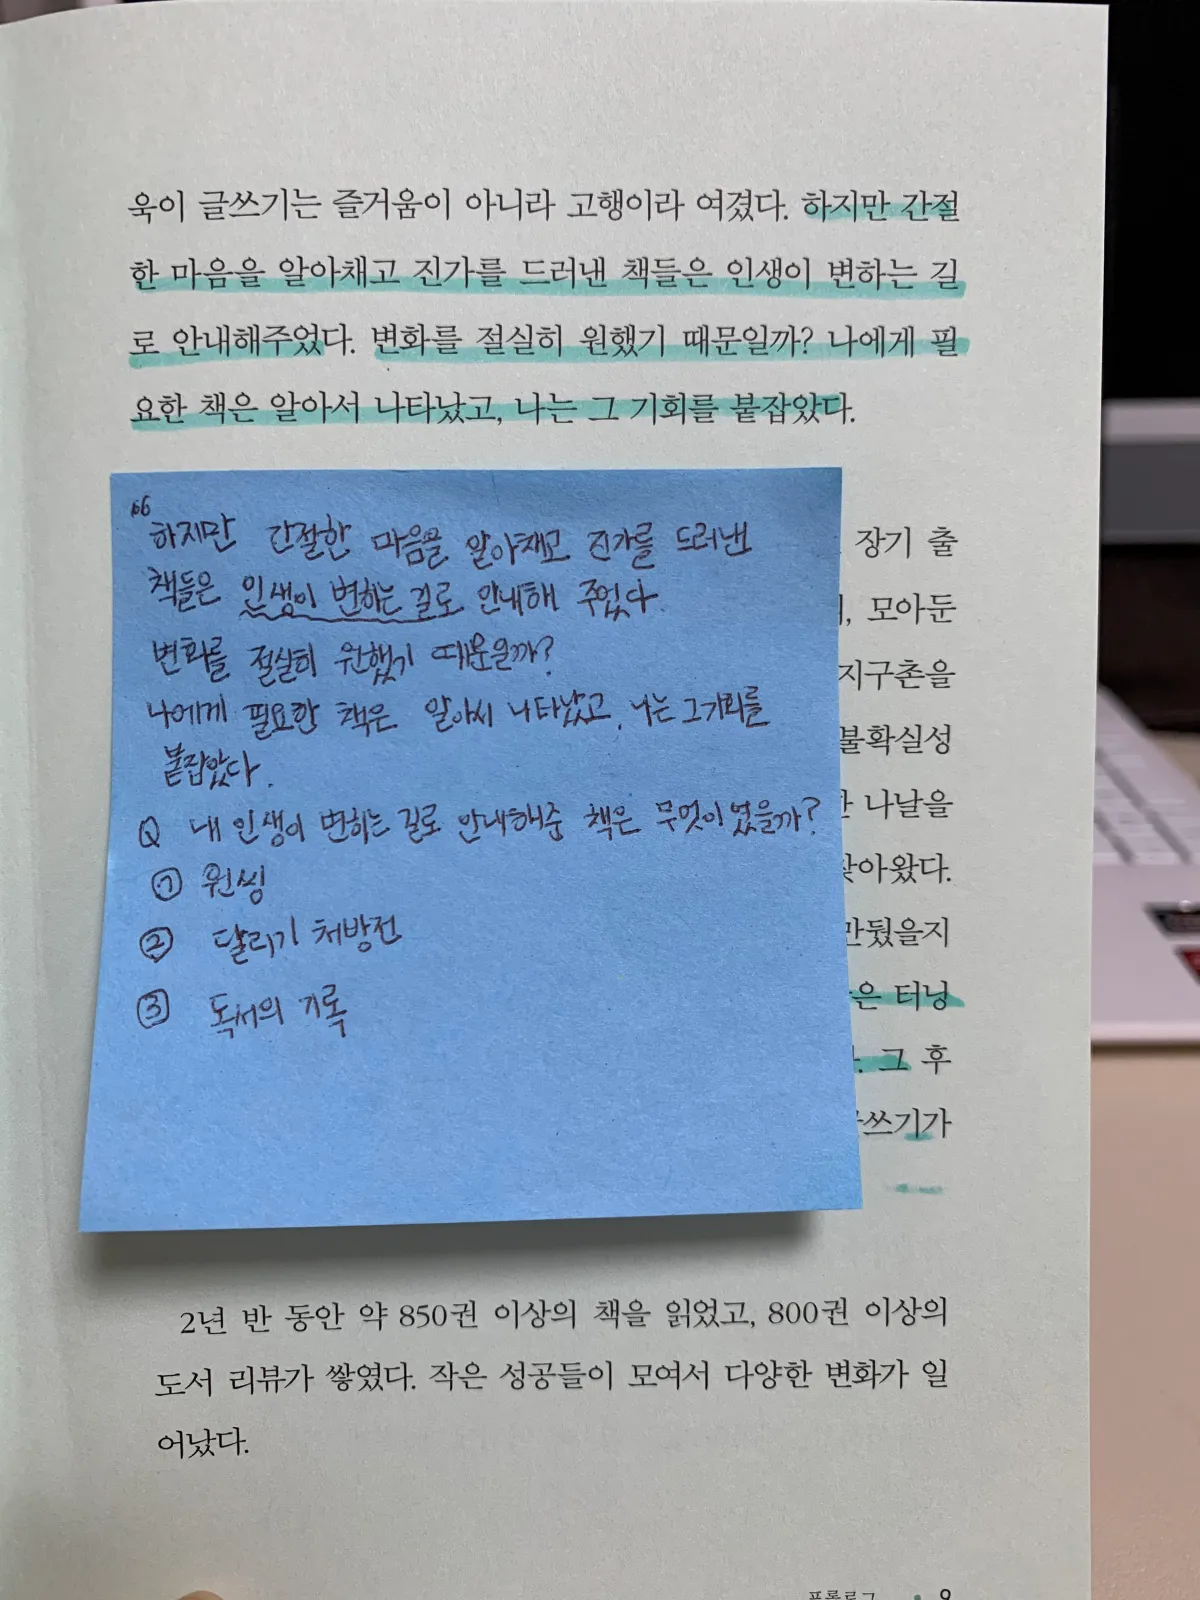 욱이 글쓰기는 즐거움이 아니라 고행이라 여겼다. 하지만 간절
한 마음을 알아채고 진가를 드러낸 책들은 인생이 변하는 길
로 안내해주었다. 변화를 절실히 원했기 때문일까? 나에게 필
요한 책은 알아서 나타났고, 나는 그 기회를 붙잡았다.
하지만 간절한 마음을 알아채고 진가를 드러낸
책들은 인생이 변하는 길로 안내해 주었다.
변화를 절실히 원했기 때문일까?
나에게 필요한 책은 알아서 나타났고, 나는 그 기회를
붙잡았다.
Q 내 인생이 변하는 길로 안내해준 책은 무엇이었을까?
① 원씽
② 달리기 처방전
③ 독서의 기록
장기 출
, 모아둔
지구촌을
불확실성
나날을
찾아왔다.
만뒀을지
은 터닝
. 그 후
쓰기가
2년 반 동안 약 850권 이상의 책을 읽었고, 800권 이상의
도서 리뷰가 쌓였다. 작은 성공들이 모여서 다양한 변화가 일
어났다.
프롤로그 • 9